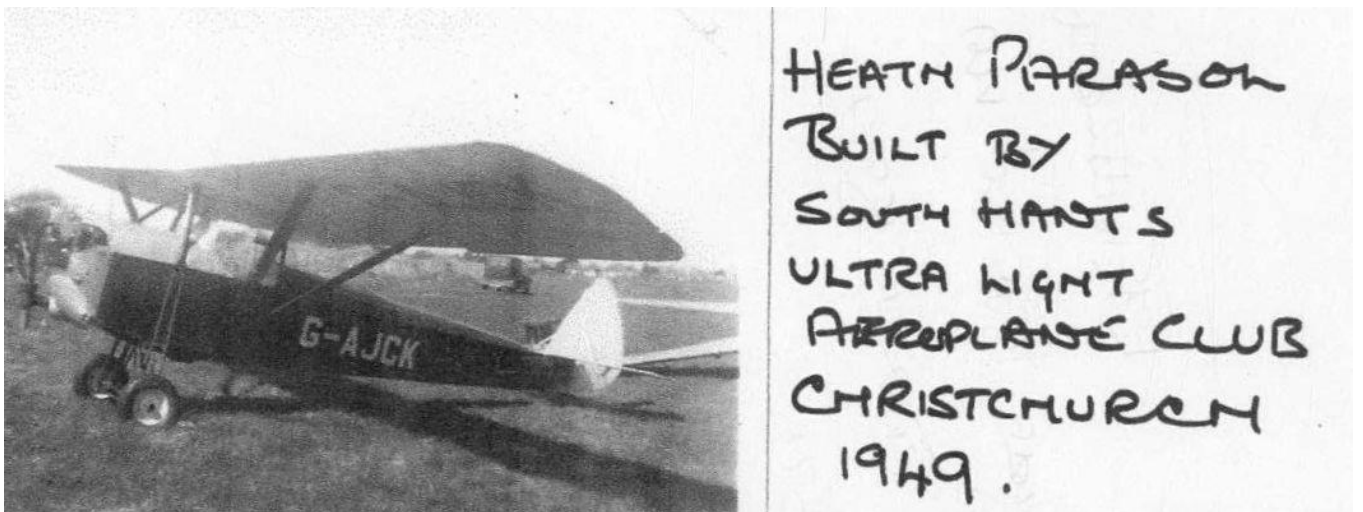 G-AJCK
HEATH PARASOL
BUILT BY
SOUTH HANTS
ULTRA LIGHT
AEROPLANE CLUB
CHRISTCHURCH
1949.